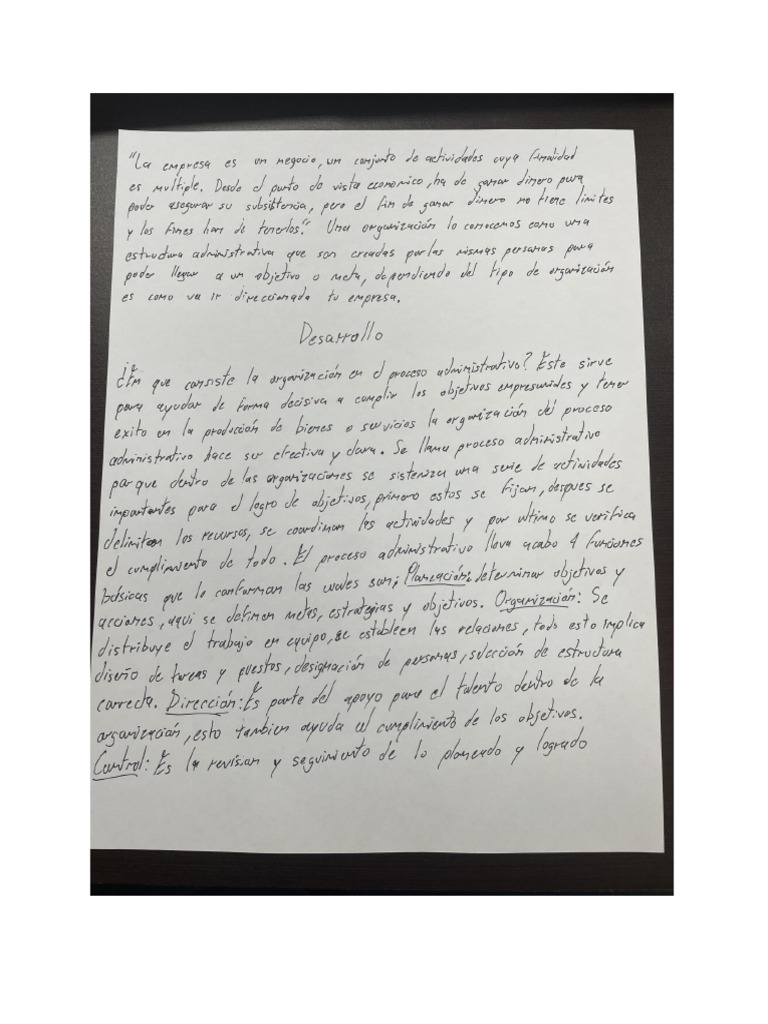 "La empresa es un negocio, un conjunto de actividades cuya finalidad
es multiple. Desde el punto de vista economico, ha de ganar dinero para
poder asegurar su subsistencia, pero el fin de ganar dinero no tiene limites
y los fines han de tenerlos." Una organización lo conocemos como una
estructura administrativa que son creadas por las mismas personas para
poder llegar a un objetivo o meta, dependiendo del tipo de organización
es como va ir direccionada tu empresa.
Desarrollo
¿En que consiste la organización en el proceso administrativo? Este sirve
para ayudar de forma decisiva a cumplir los objetivos empresariales y tener
exito en la producción de bienes o servicios la organización del proceso
administrativo hace ser efectiva y clara. Se llama proceso administrativo
porque dentro de las organizaciones se sistemiza una serie de actividades
importantes para el logro de objetivos, primero estos se fijan, despues se
delimitan los recursos, se coordinan las actividades y por ultimo se verifica
el cumplimiento de todo. El proceso administrativo lleva acabo 4 funciones
básicas que lo conforman las cuales son; Planeación: determinar objetivos y
acciones, aqui se definen metas, estrategias y objetivos. Organización: Se
distribuye el trabajo en equipo, se establecen las relaciones, todo esto implica
diseño de tareas y puestos, designación de personas, selección de estructura
correcta. Dirección: Es parte del apoyo para el talento dentro de la
organización, esto tambien ayuda al cumplimiento de los objetivos.
Control: Es la revision y seguimiento de lo planeado y logrado